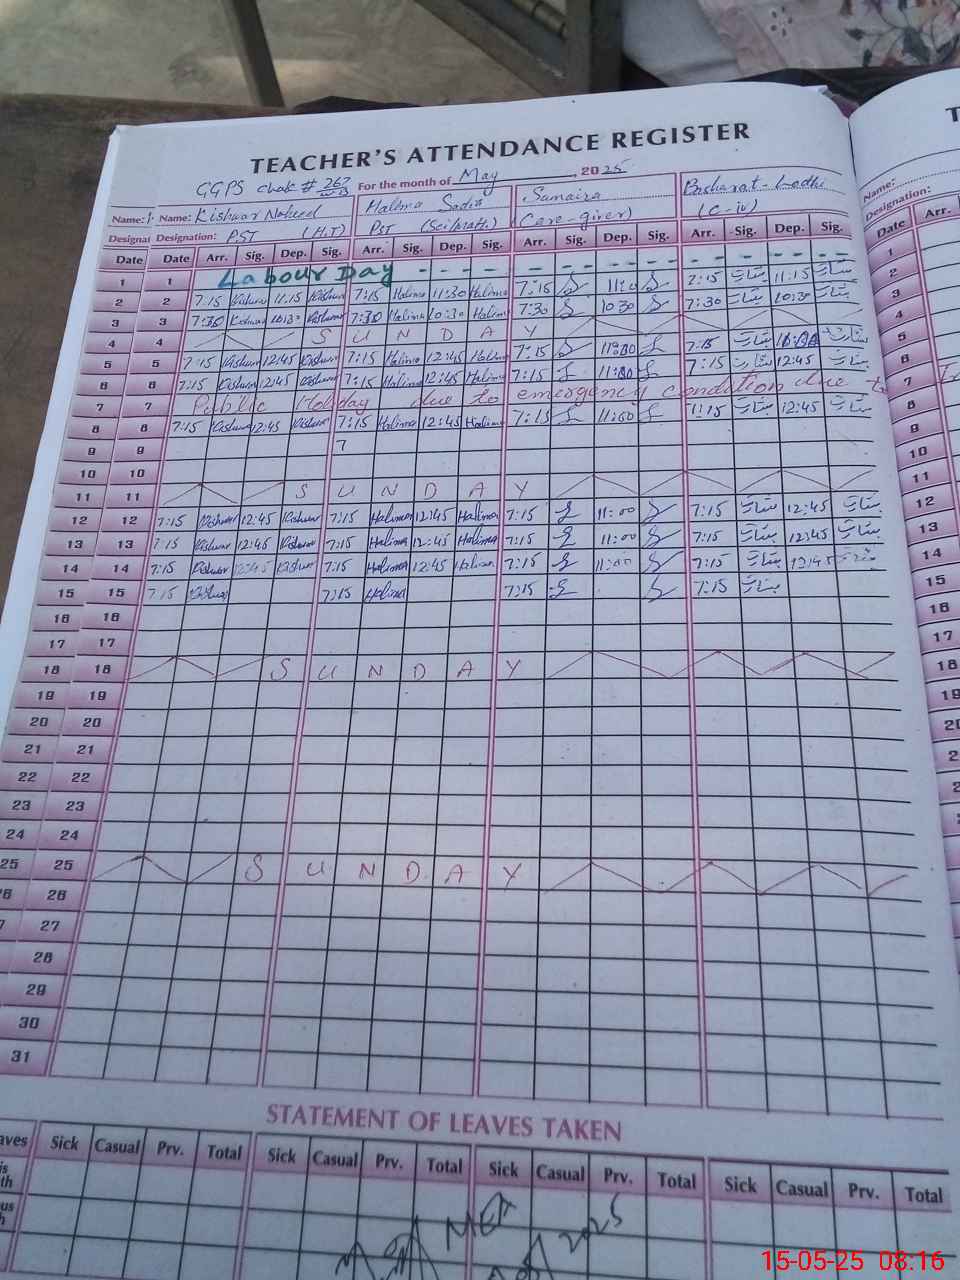 TEACHER'S ATTENDANCE REGISTER
GGPS chak # 267 For the month of May, 2025
Name: Name: Kishwar Naheed Halima Sadia Sumaira Basharat Lodhi
Designation: PST (H.T) PST (Sci/Math) (Care-giver) (C-iv)
Date Date Arr. Sig. Dep. Sig. Arr. Sig. Dep. Sig. Arr. Sig. Dep. Sig. Arr. Sig. Dep. Sig.
1 1 Labour Day - - - - - - - - -
2 2 7:15 Kishwar 11:15 Kishwar 7:15 Halima 11:30 Halima 7:15 7:15 بشارت 11:15 بشارت
3 3 7:30 Kishwar 10:30 Kishwar 7:30 Halima 10:30 Halima 7:30 10:30 7:30 بشارت 10:30 بشارت
4 4 S U N D A Y
5 5 7:15 Kishwar 12:45 Kishwar 7:15 Halima 12:45 Halima 7:15 11:00 7:15 بشارت بشارت
6 6 7:15 Kishwar 12:45 Kishwar 7:15 Halima 12:45 Halima 7:15 11:00 7:15 بشارت 12:45 بشارت
7 7 Public Holiday due to emergency condition due to
8 8 7:15 Kishwar 12:45 Kishwar 7:15 Halima 12:45 Halima 7:15 11:00 7:15 بشارت 12:45 بشارت
9 9 7
10 10
11 11 S U N D A Y
12 12 7:15 Kishwar 12:45 Kishwar 7:15 Halima 12:45 Halima 7:15 11:00 7:15 بشارت 12:45 بشارت
13 13 7:15 Kishwar 12:45 Kishwar 7:15 Halima 12:45 Halima 7:15 11:00 7:15 بشارت 12:45 بشارت
14 14 7:15 Kishwar 12:45 Kishwar 7:15 Halima 12:45 Halima 7:15 11:00 7:15 بشارت 12:45 بشارت
15 15 7:15 Kishwar 7:15 Halima 7:15 7:15 بشارت
16 16
17 17
18 18 S U N D A Y
19 19
20 20
21 21
22 22
23 23
24 24
25 25 S U N D A Y
26 26
27
28
29
30
31
STATEMENT OF LEAVES TAKEN
Sick Casual Prv. Total Sick Casual Prv. Total Sick Casual Prv. Total Sick Casual Prv. Total
MEA
2025
Name:
Designation:
Date Arr.
1
2
3
5
6
7
8
9
11
12
13
14
15
16
17
18
19
15-05-25 08:16